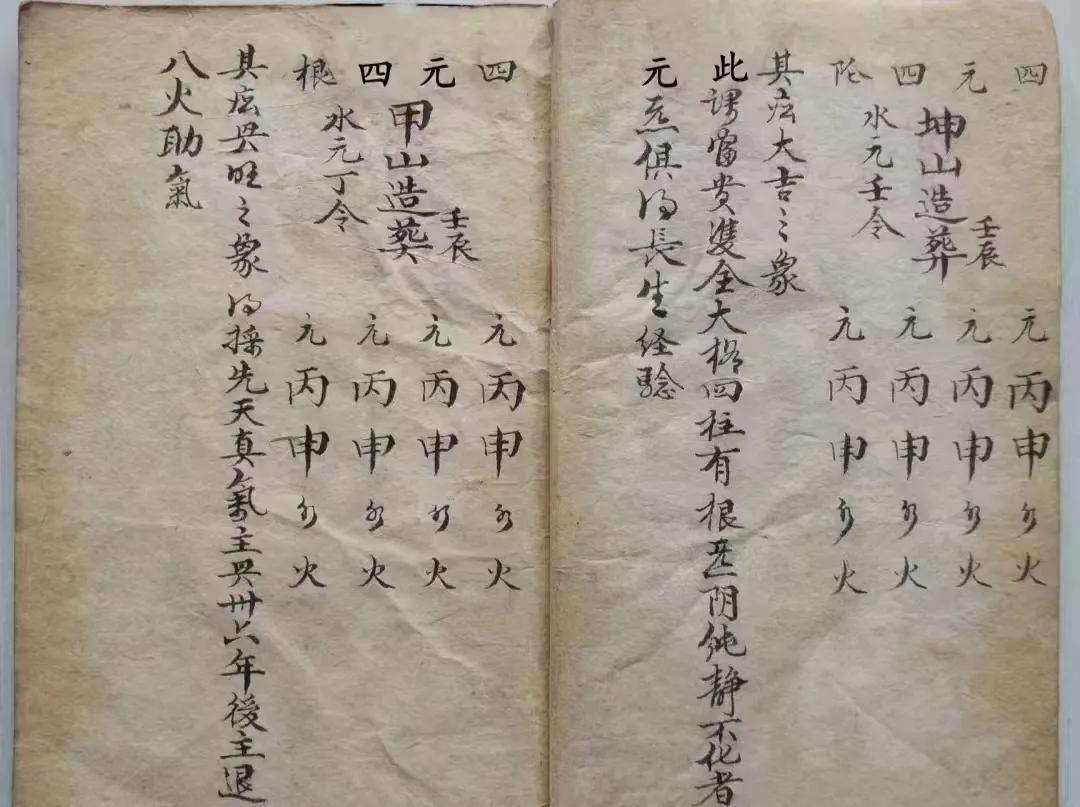 四 元丙申 火
元 元丙申 火
坤山造葬 壬辰
四 元丙申 火
水元壬令
元丙申 火
其 大吉之象
此謂富貴雙全大格四柱有根 阴純静不化者
元炁俱得長生経驗
四 元丙申 火
元 元丙申 火
甲山造葬 壬辰
四 元丙申 火
水元丁令
根 元丙申 火
其 旺之象 得採先天真氣主 卅六年後主退
八火助氣